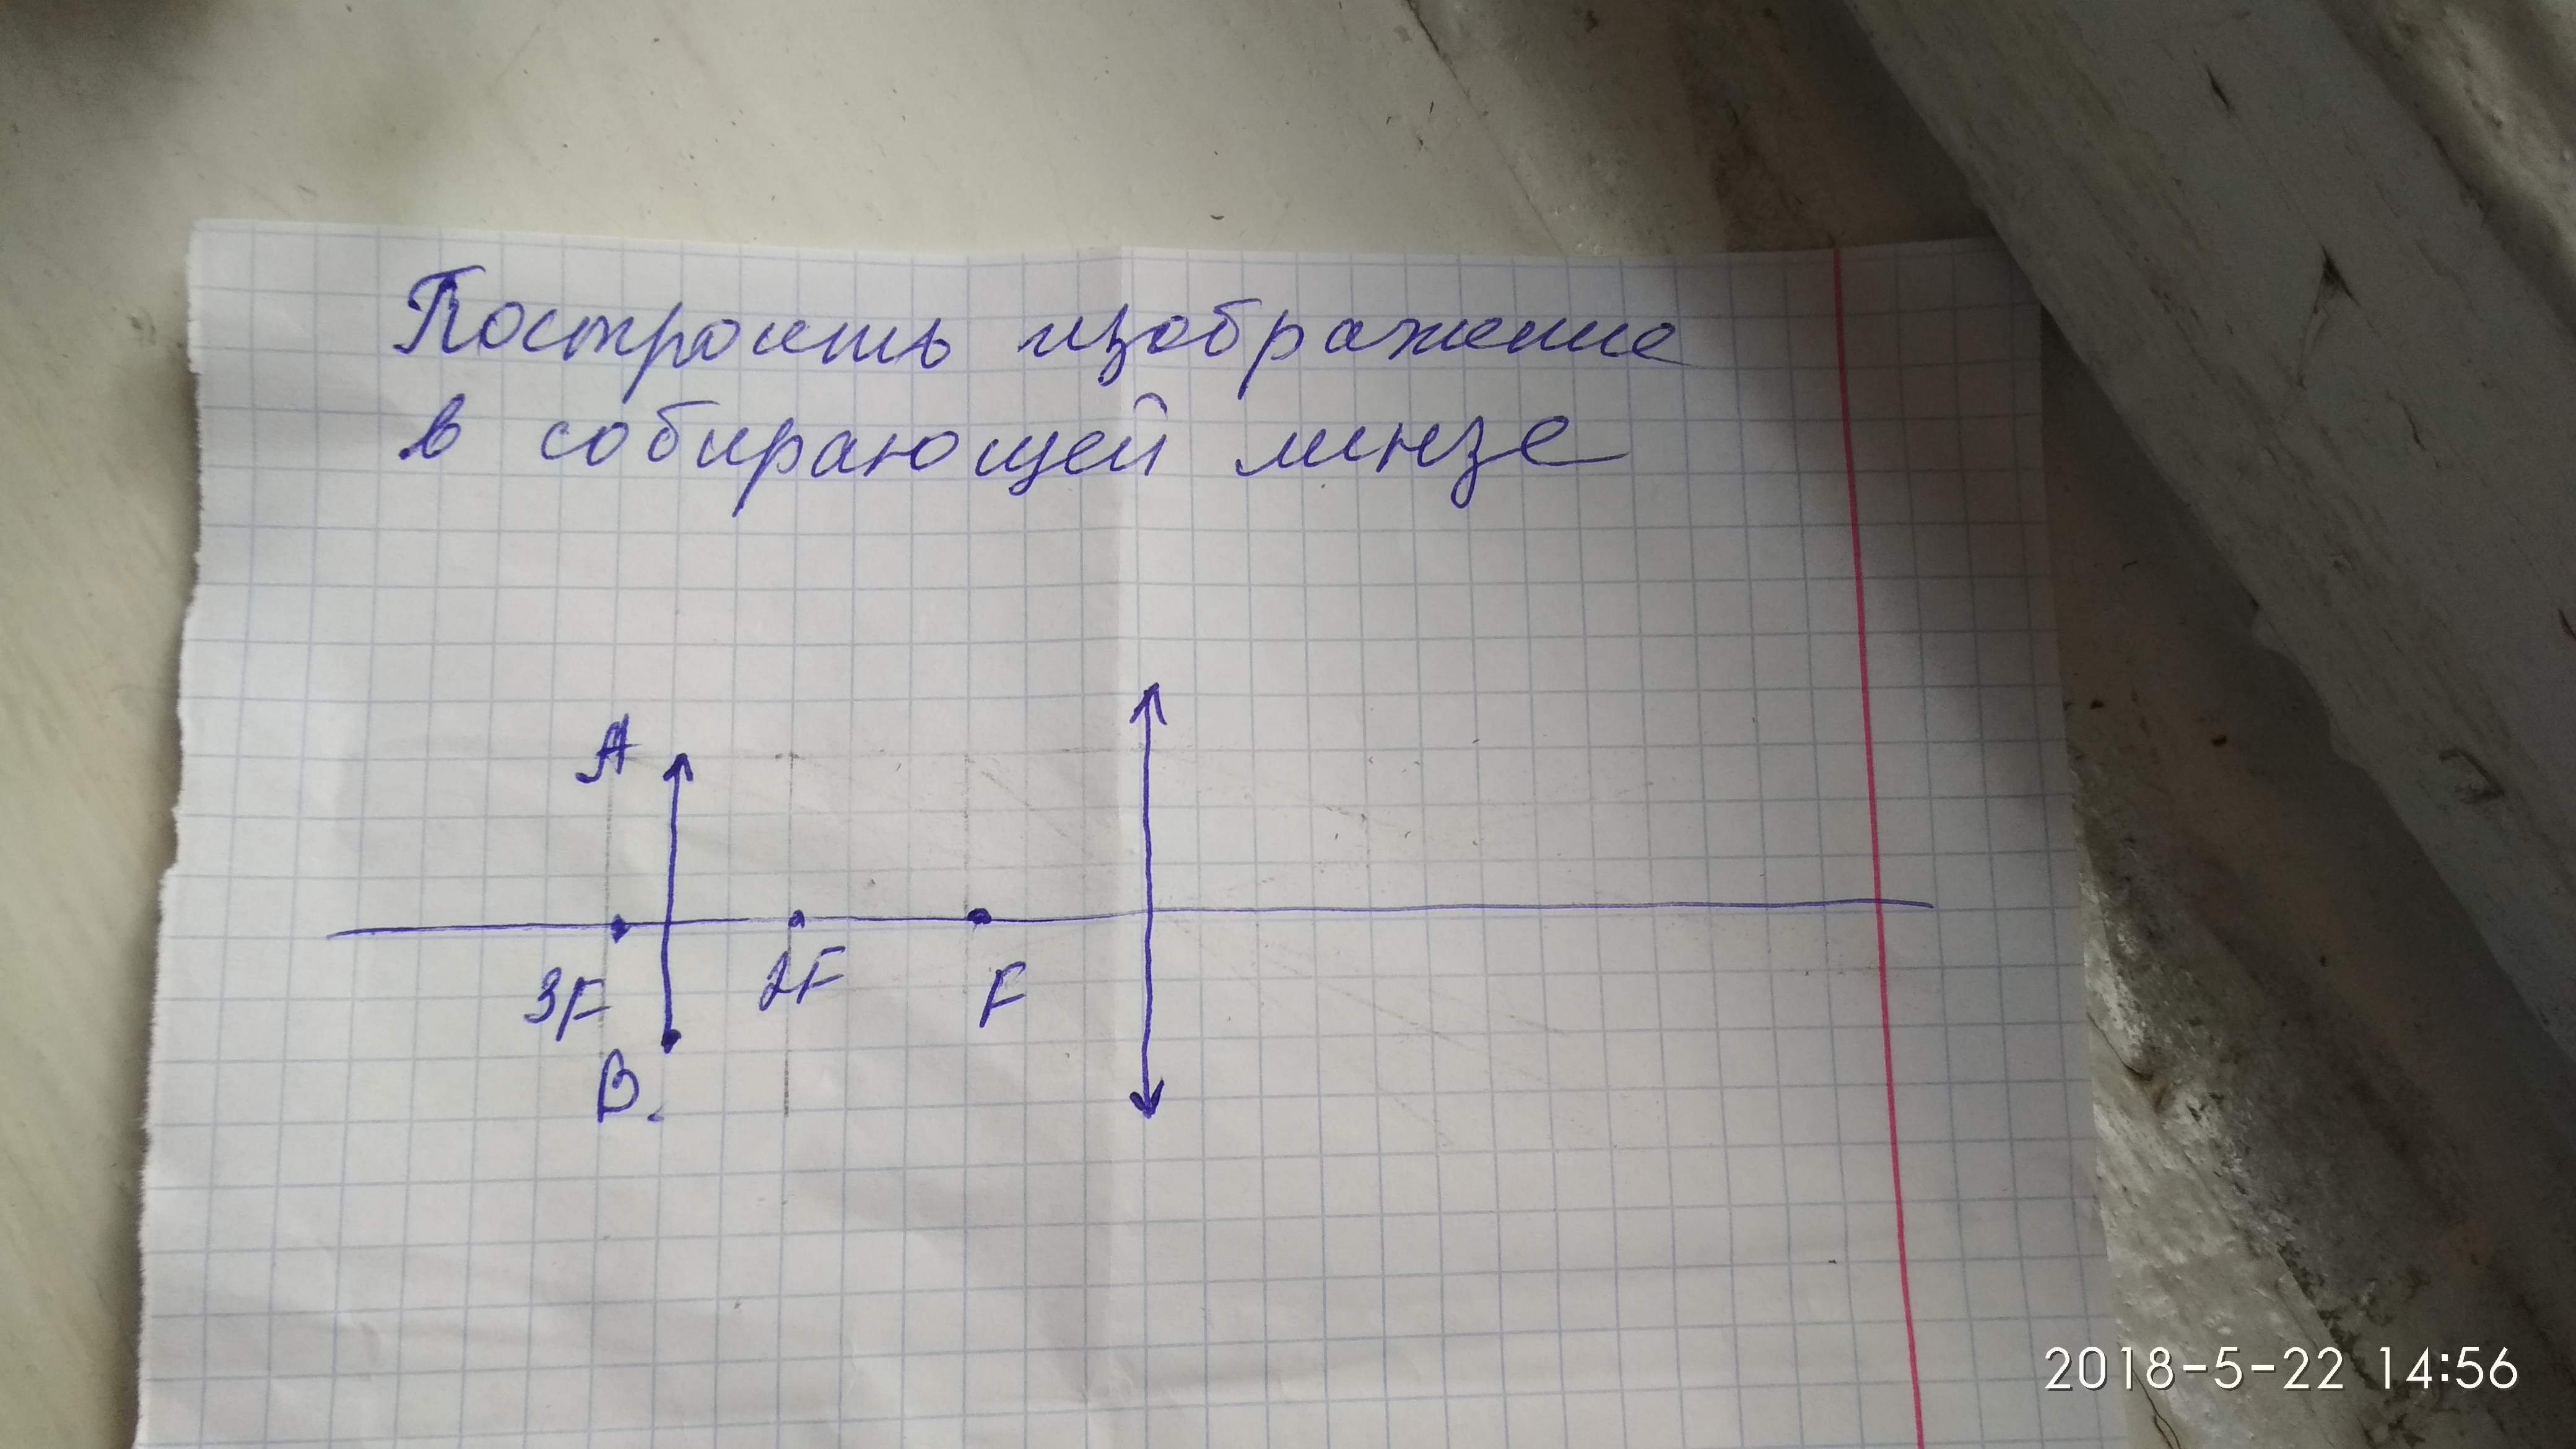 Построить изображение
в собирающей линзе
A
3F 2F F
B.
2018-5-22 14:56